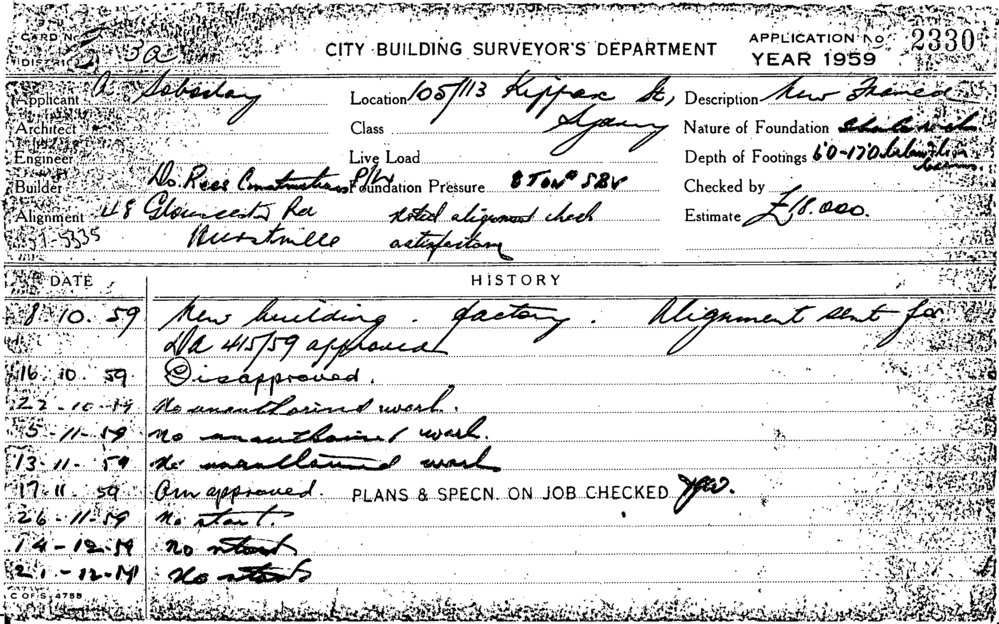 CARD No
DISTRICT 3a
CITY BUILDING SURVEYOR'S DEPARTMENT
APPLICATION No 2330
YEAR 1959
Applicant A.
Location 105/113 Kippax St,
Sydney
Description New
Architect
Class
Nature of Foundation
Engineer
Live Load
Depth of Footings 60-170
Builder Do. Rees Constructions P/L
Foundation Pressure 8 TON
Checked by
Alignment 48 Gloucester Rd
Hurstville
noted alignment check
satisfactory
Estimate £18.000.
57-5335
DATE HISTORY
8 10. 59 New building. factory. Alignment sent for
DA 415/59 approved
16 10. 59 Disapproved.
22-10-59 No unauthorised work.
5-11-59 no unauthorised work.
13-11-59 No unauthorised work
17 11. 59 approved. PLANS & SPECN. ON JOB CHECKED
26-11-59 No start.
14-12-59 no start
21-12-59 No start
C OF S 4788